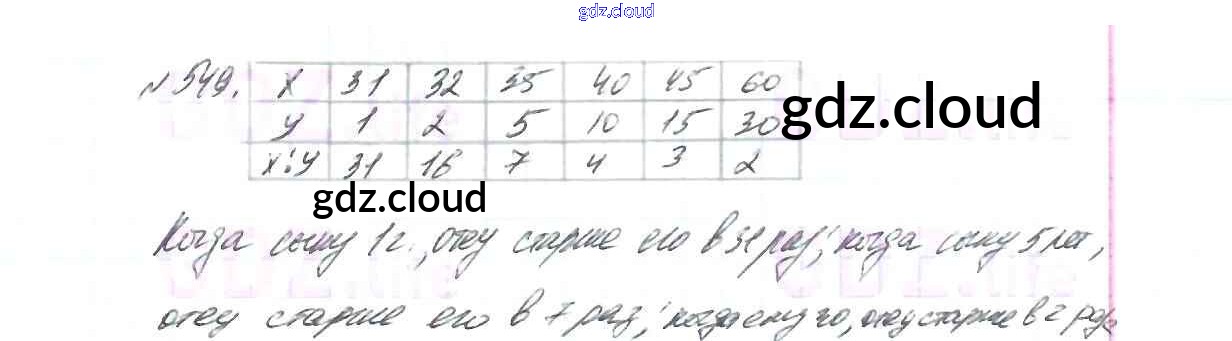 gdz.cloud
№549. х 31 32 35 40 45 60
у 1 2 5 10 15 30 gdz.cloud
х:у 31 16 7 4 3 2
gdz.cloud
Когда сыну 1 г., отец старше его в 31 раз; когда сыну 5 лет,
отец старше его в 7 раз; когда сыну 30, отец старше в 2 раза